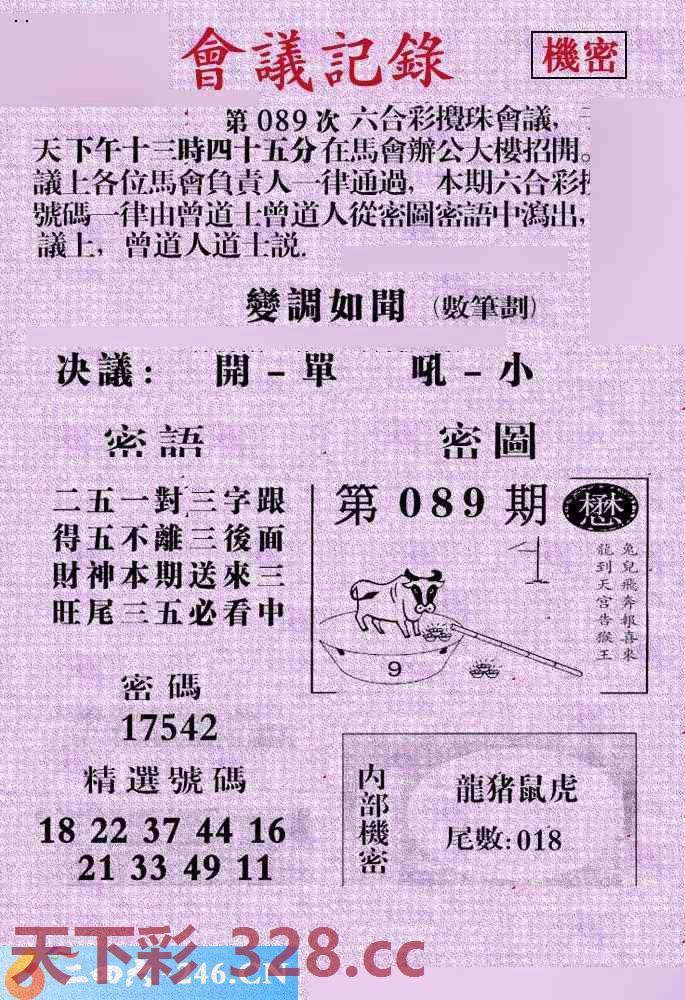 會議記錄
機密
第 089 次 六合彩攪珠會議,
天下午十三時四十五分在馬會辦公大樓招開。
議上各位馬會負責人一律通過, 本期六合彩
號碼一律由曾道士曾道人從密圖密語中瀉出,
議上, 曾道人道士説.
變調如聞 (數筆劃)
决議: 開-單 吼-小
密語
二五一對三字跟
得五不離三後面
財神本期送來三
旺尾三五必看中
密碼
17542
精選號碼
18 22 37 44 16
21 33 49 11
密圖
第 089 期 懋
兔兒飛奔報喜來
龍到天宮告猴王
9
内部機密
龍猪鼠虎
尾數:018
天下彩 328.cc
246.CN